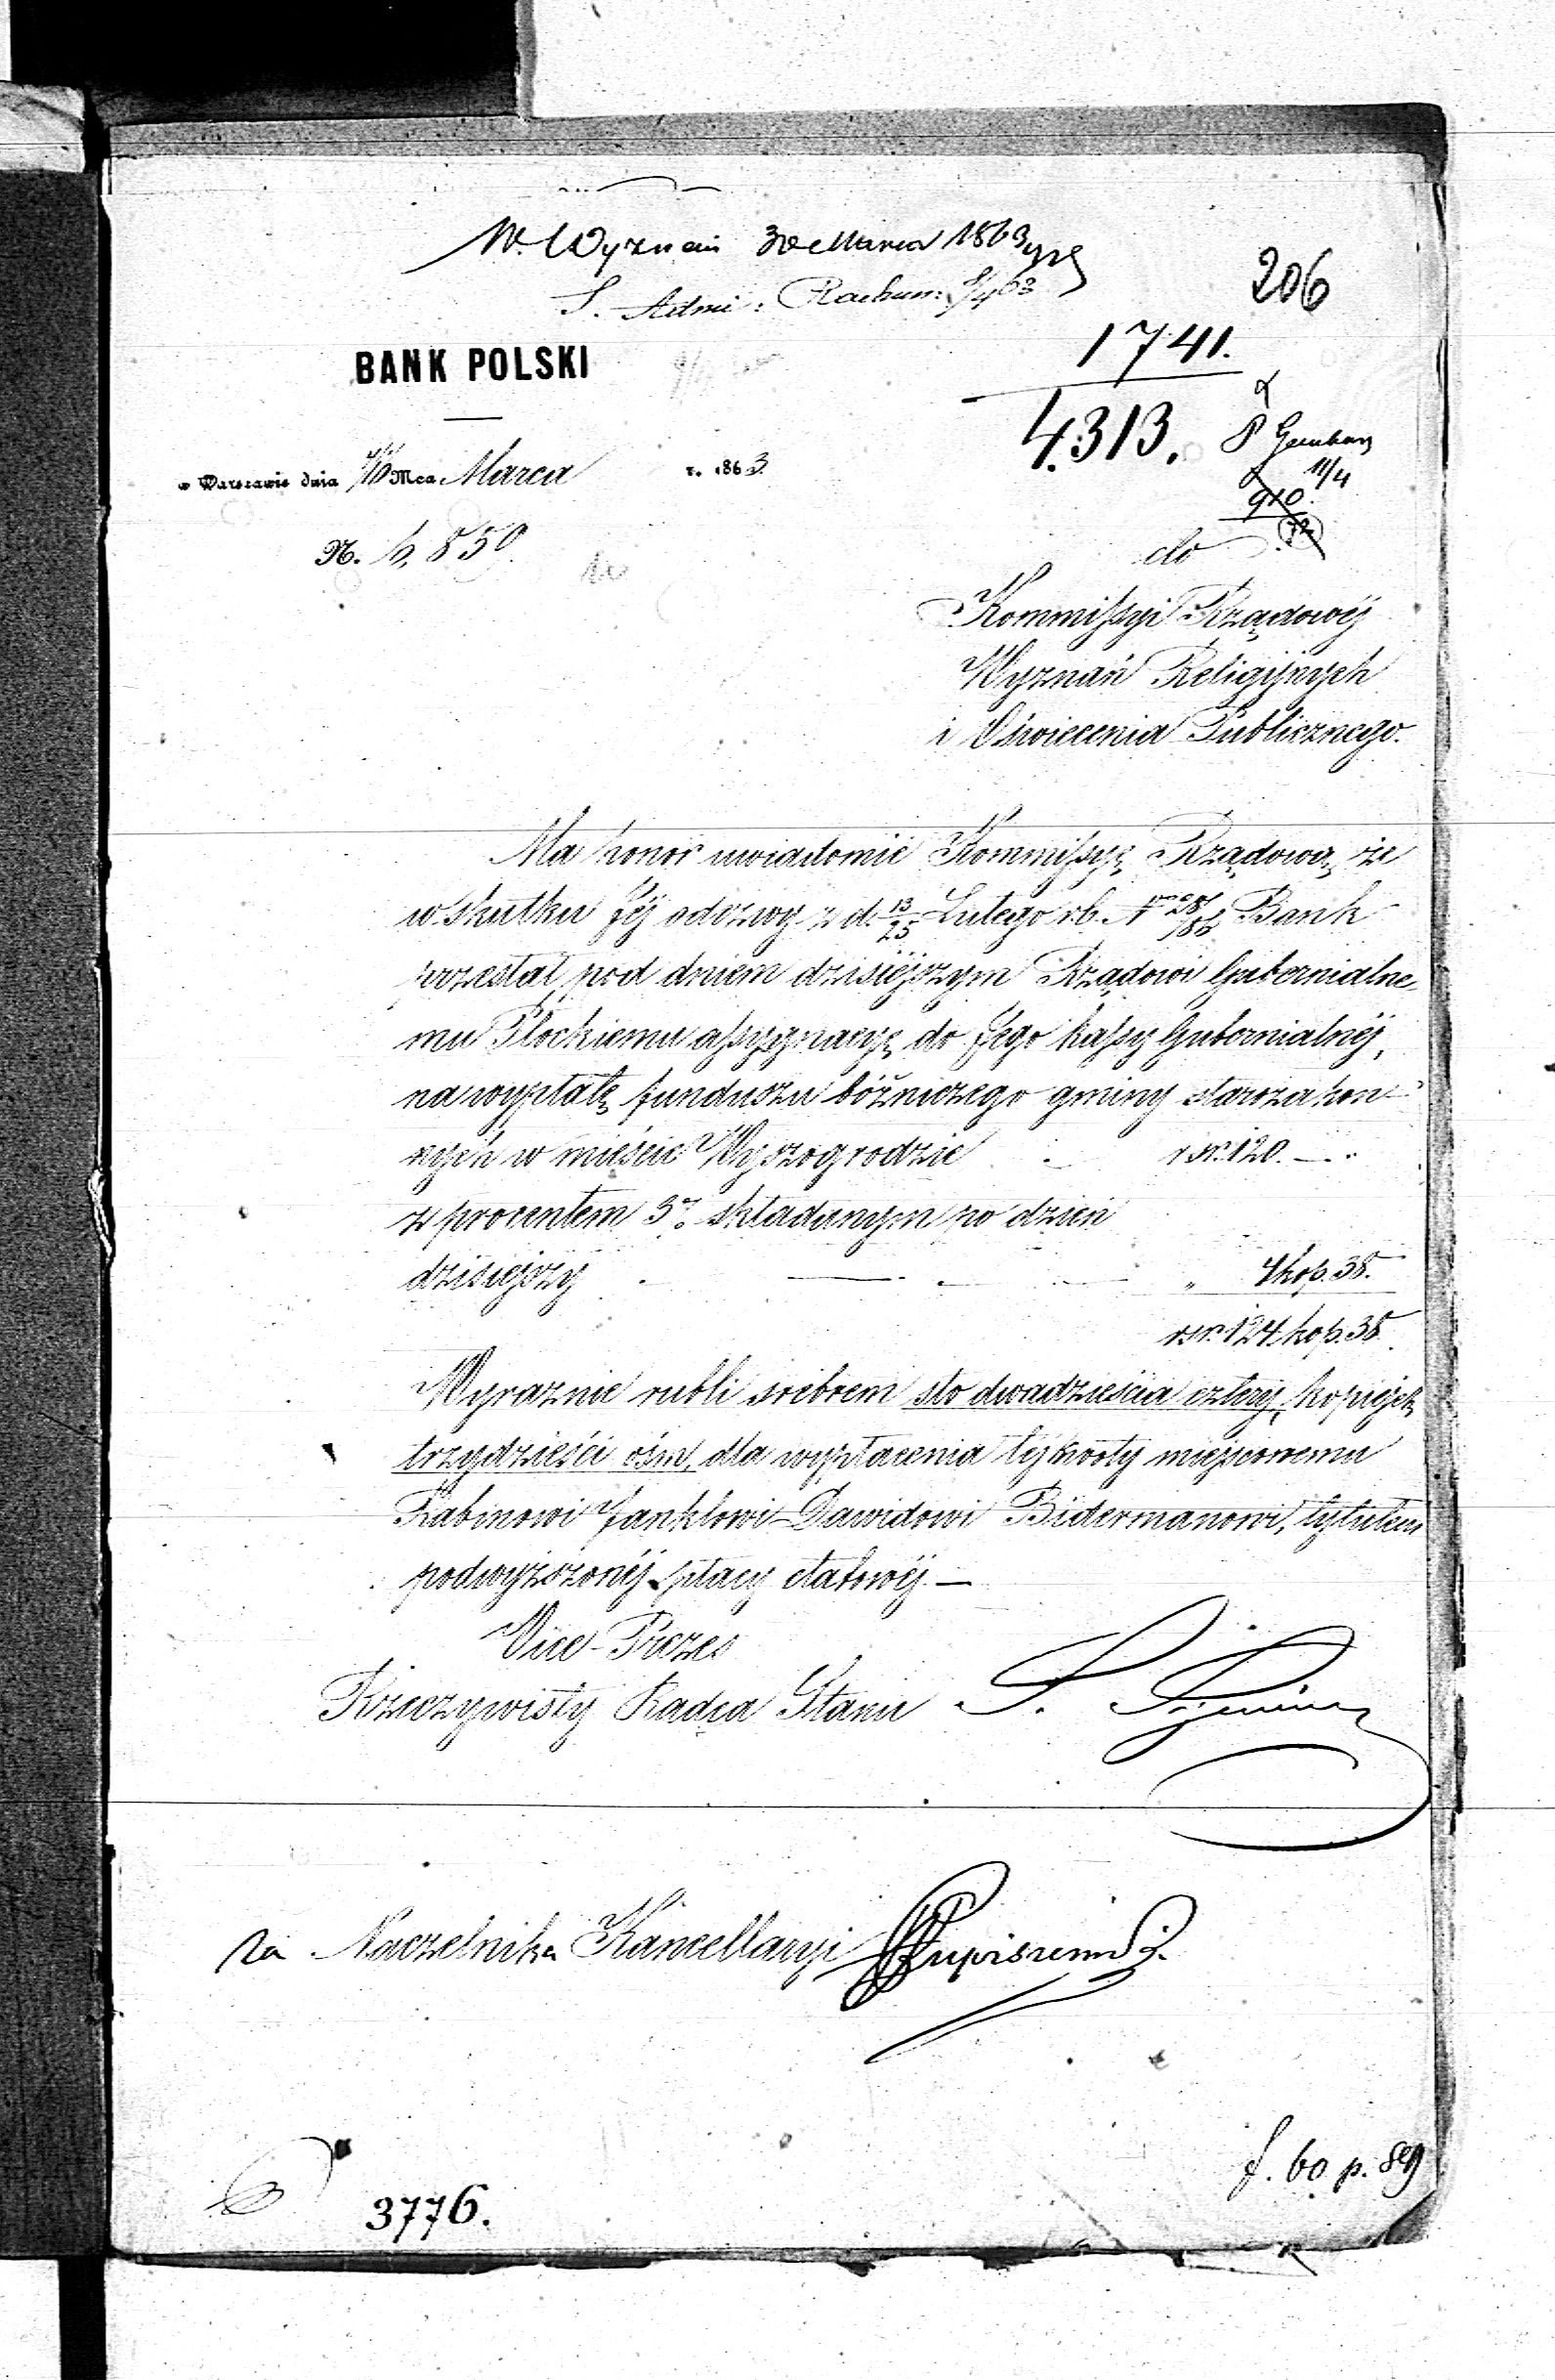 W. Wyznań 30 Marca 1863
S. Admi: Rachun: 9/4 63
206
1741.
BANK POLSKI
4313.
11/4
910.
w Warszawie dnia Mca Marca r. 1863
72
N. 6,850.
do
Kommissyi Rządowéj
Wyznań Religijnych
i Oświecenia Publicznego.
Ma honor uwiadomić Kommissyę Rządową, że
w skutku Jéj odezwy z d. 13/25 Lutego r.b. N Bank
przesłał pod dniem dzisiéjszym Rządowi Gubernialne-
mu Płockiemu assygnacyę do Jego kassy Gubernialnéj,
na wypłatę funduszu bóżniczego gminy starozakon-
nych w mieście Wyszogrodzie rsr. 120. —
z procentem 3% składanym po dzień
dzisiejszy — — " 4 kop. 38.
rsr. 124 kop. 38.
Wyraźnie rubli srebrem sto dwadzieścia cztery, kopiejek
trzydzieści ośm, dla wypłacenia téj kwoty miejscowemu
Rabinowi Janklowi-Dawidowi Bidermanowi, tytułem
podwyższonéj płacy etatowéj. —
Vice-Prezes
Rzeczywisty Radca Stanu
za Naczelnika Kancellaryi
f. 60 p. 889
3776.